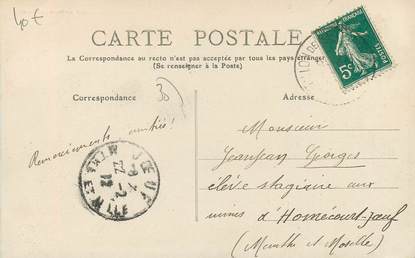 40€
CARTE POSTALE
La Correspondance au recto n'est pas acceptée par tous les pays étrangers
(Se renseigner à la Poste)
Correspondance
30
Adresse
REPUBLIQUE FRANÇAISE
POSTES
5c
Remerciements amitiés!
JŒUF
22-2
12
Mthe ET Mlle
Monsieur
Jeanjean Georges
élève stagiaire aux
mines d'Homécourt-Jœuf
(Meurthe et Moselle)